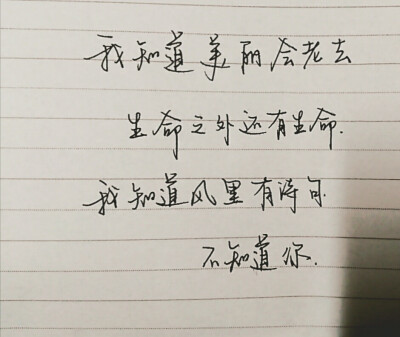 我知道美丽会老去
生命之外还有生命.
我知道风里有诗句
不知道你.